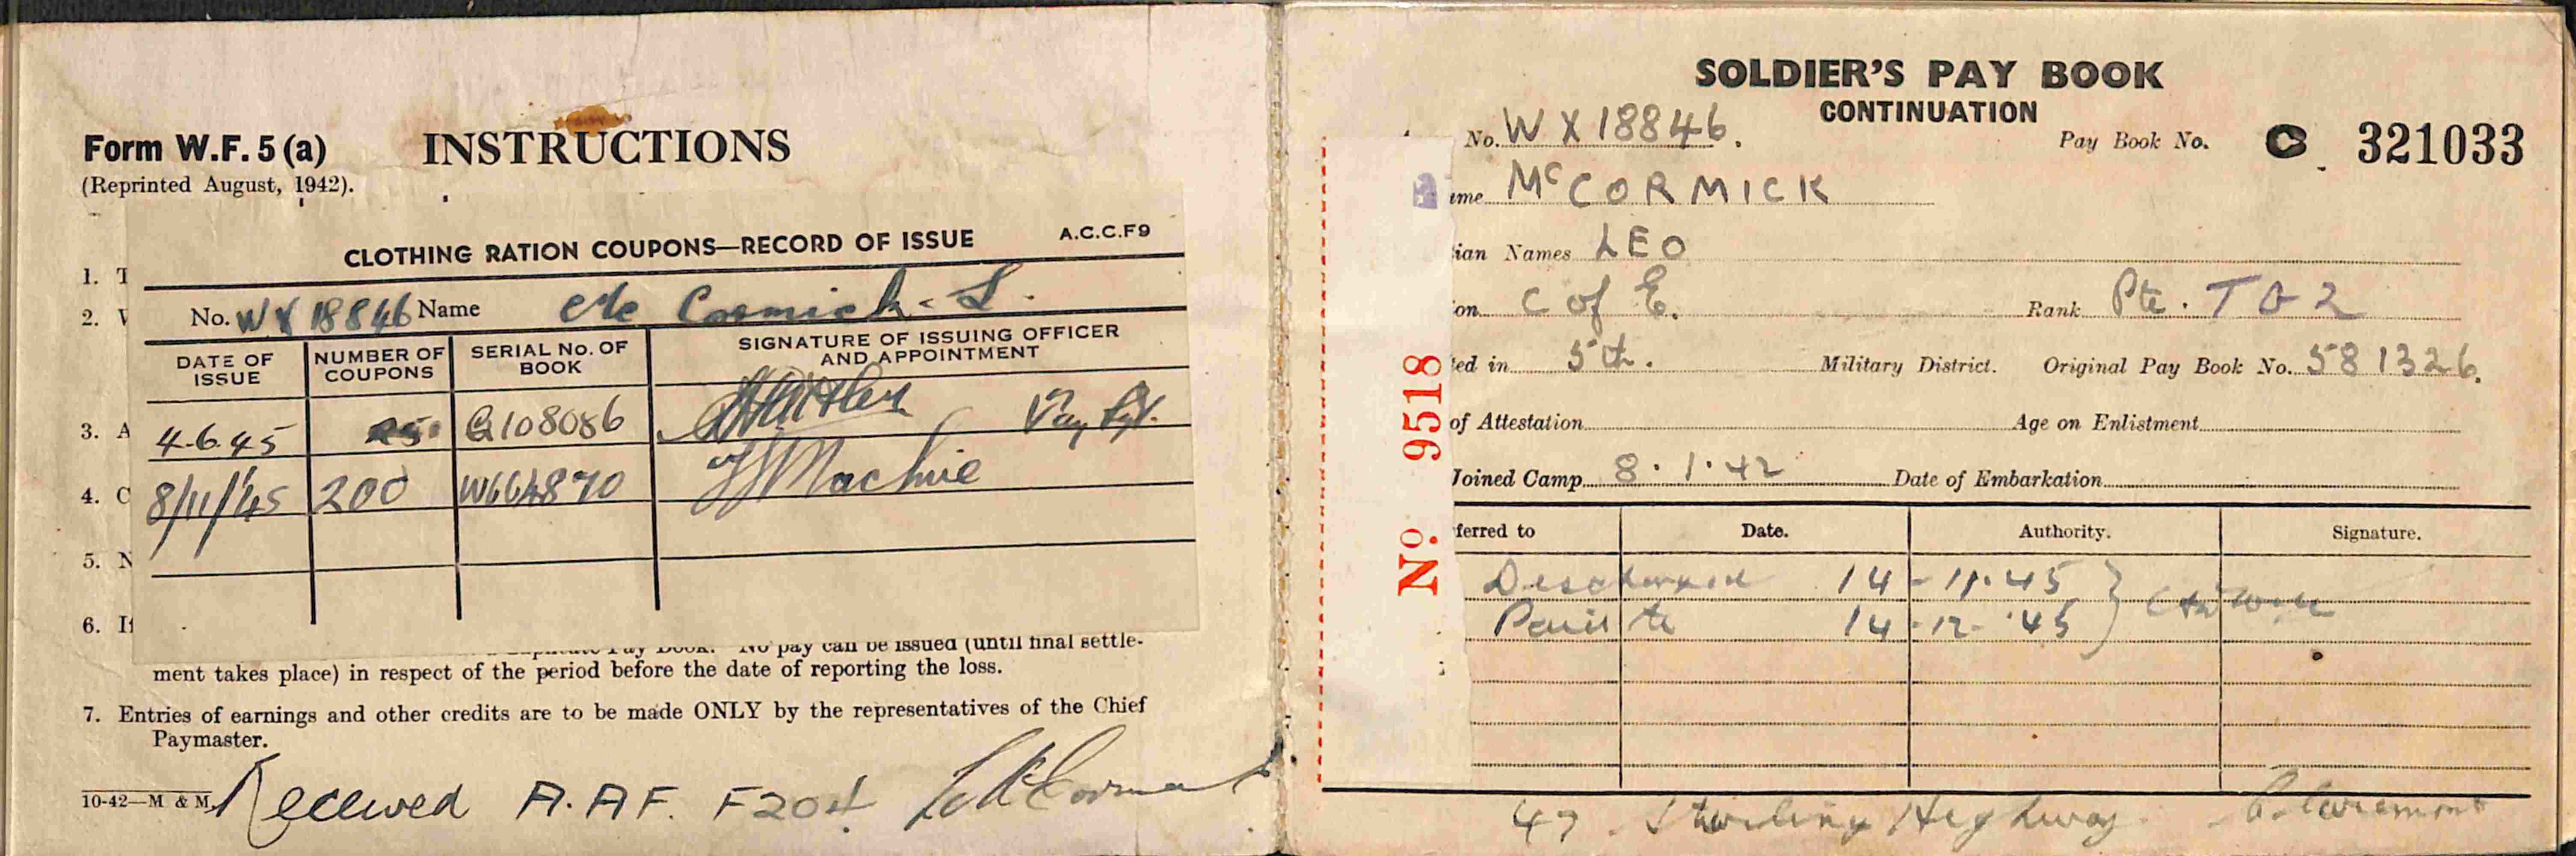 Form W.F. 5 (a) INSTRUCTIONS
(Reprinted August, 1942).
CLOTHING RATION COUPONS—RECORD OF ISSUE A.C.C.F9
1. T
No. WX 18846 Name Mc Cormick. L.
2. V
DATE OF ISSUE NUMBER OF COUPONS SERIAL No. OF BOOK SIGNATURE OF ISSUING OFFICER AND APPOINTMENT
3. A
4.6.45 G108086 Pay Sgt.
4. C
8/11/45 200 W664870
5. N
6. If
No pay can be issued (until final settle-
ment takes place) in respect of the period before the date of reporting the loss.
7. Entries of earnings and other credits are to be made ONLY by the representatives of the Chief
Paymaster.
10-42—M & M.
Received A.A.F. F204 L McCormack
SOLDIER'S PAY BOOK
CONTINUATION
No. WX18846. Pay Book No. C 321033
ame McCORMICK
ian Names LEO
on C of E. Rank Pte. TG2
ted in 5th. Military District. Original Pay Book No. 581326.
of Attestation Age on Enlistment
Joined Camp 8.1.42 Date of Embarkation
ferred to Date. Authority. Signature.
Discharged 14-11-45
Paid to 14-12-45
No. 9518
47 Stirling Highway Claremont